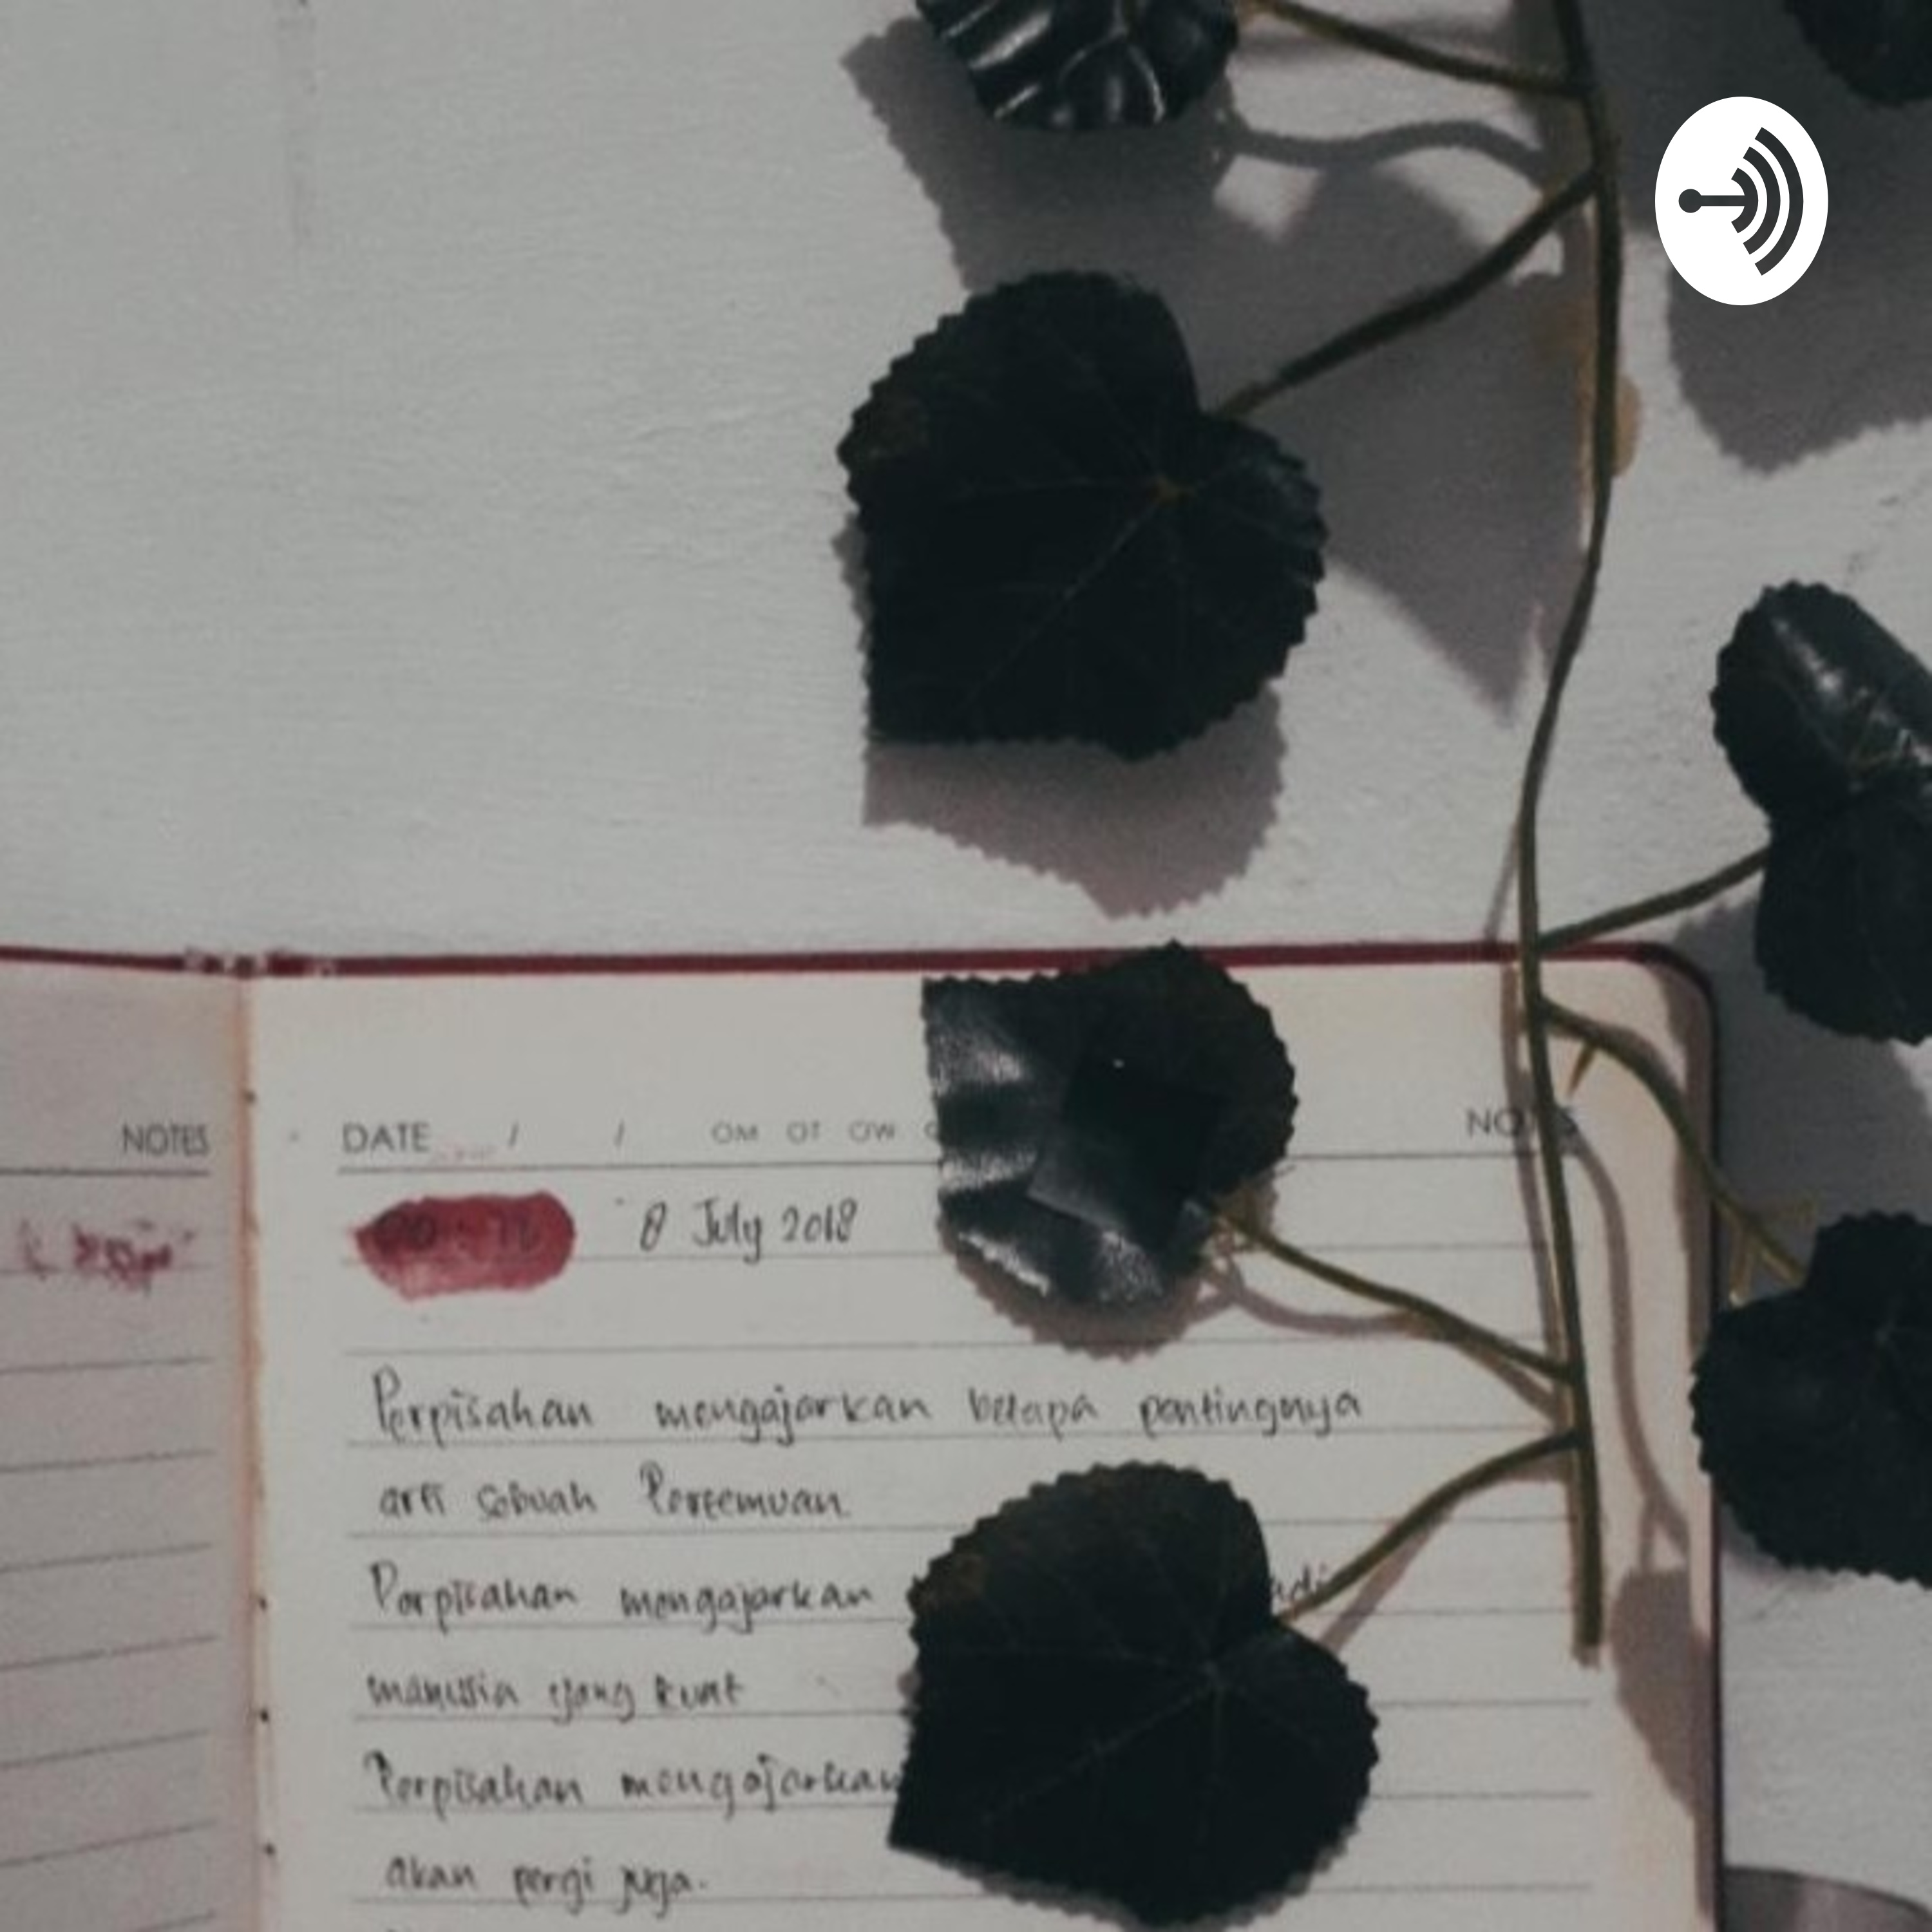 NOTES
DATE / / OM OT OW NOTES
8 July 2018
Perpisahan mengajarkan betapa pentingnya
arti sebuah Pertemuan
Perpisahan mengajarkan
manusia yang kuat
Perpisahan mengajarkan
akan pergi juga.